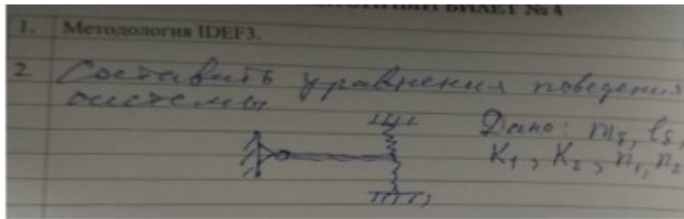 БИЛЕТ № 4
1. Методология IDEF3.
2. Составить уравнения поведения
системы
Дано: m₅, l₅,
K₁, K₂, n₁, n₂